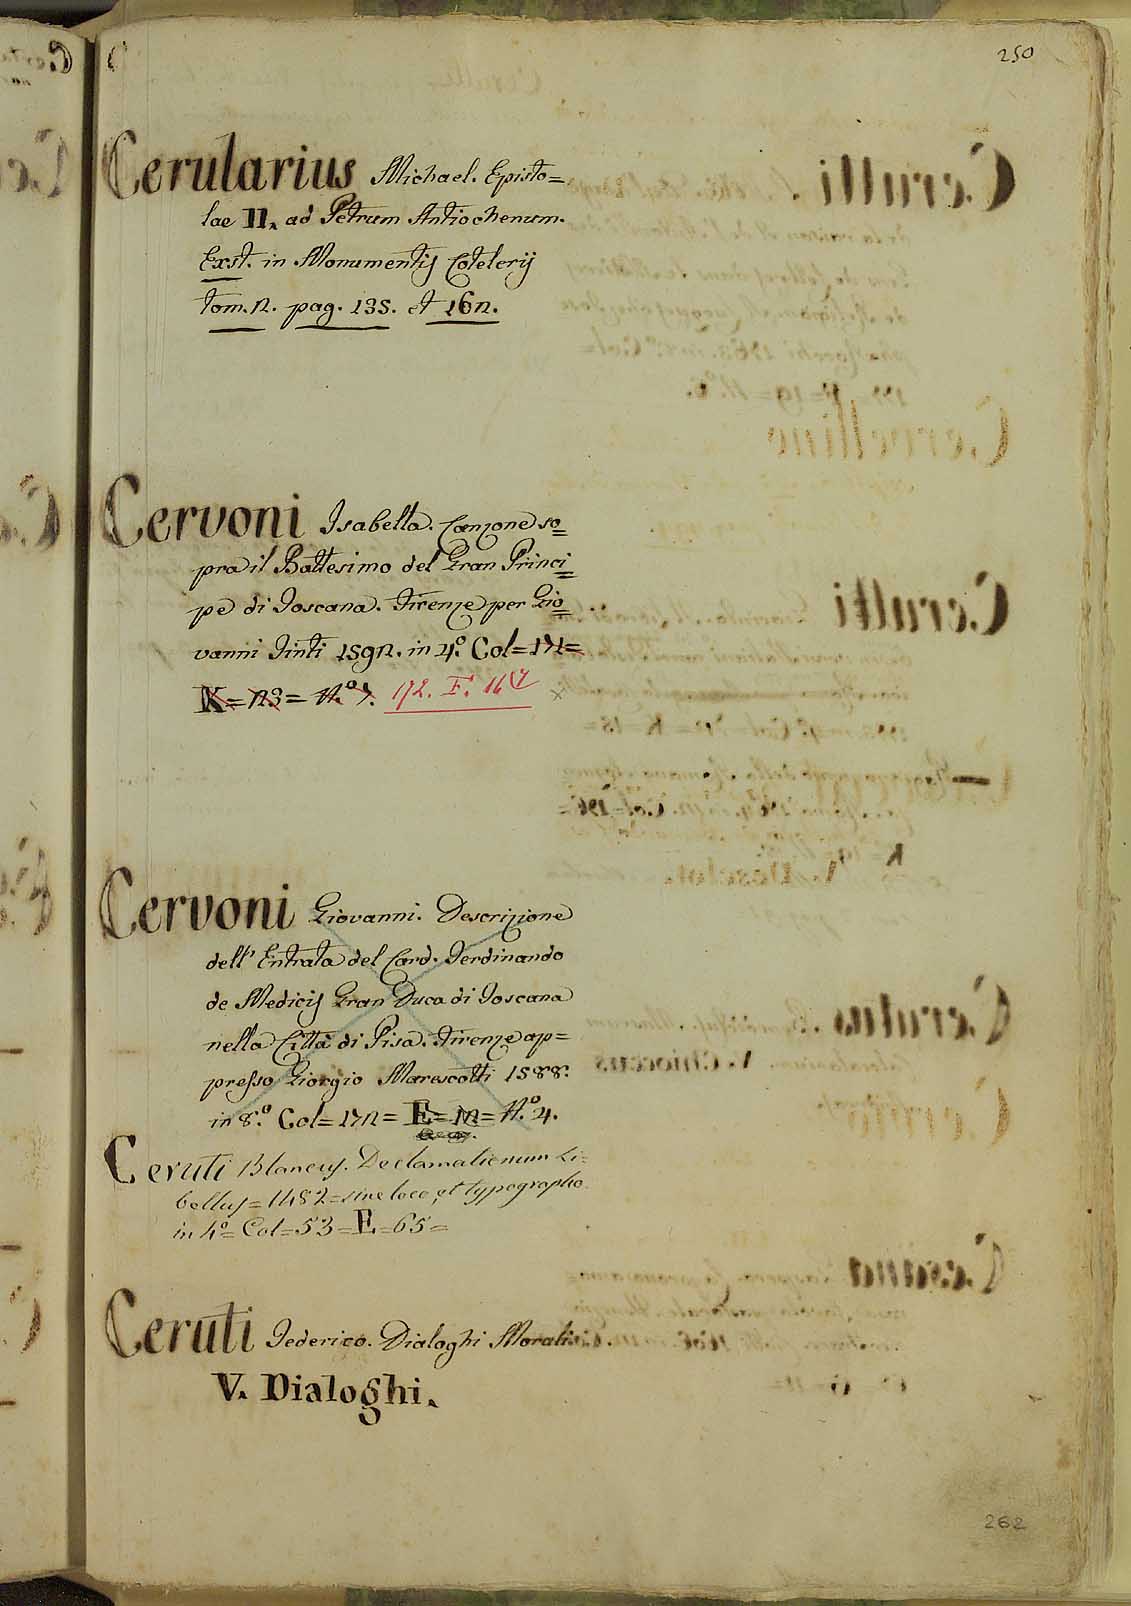 250
Cerularius Michael. Episto=
lae II. ad Petrum Antiochenum.
Exst. in Monumentis Cotelerij
tom. 2. pag. 135. et 162.
Cervoni Isabella. Canzone so=
pra il Battesimo del Gran Princi=
pe di Toscana. Firenze per Gio=
vanni Tinti 1592. in 4.º Col=171=
K=23= N.º 7. 172. F. 16
Cervoni Giovanni. Descrizione
dell' Entrata del Card. Ferdinando
de Medicis Gran Duca di Toscana
nella Città di Pisa. Firenze ap=
presso Giorgio Marescotti 1588.
in 8.º Col=172= E= = N.º 4.
Ceruti Blancus. Declamationum Li=
bellus=1482=sine loco, et typographo
in 4º= Col=53=E=65=
Ceruti Federico. Dialoghi Morali
V. Dialoghi.
262